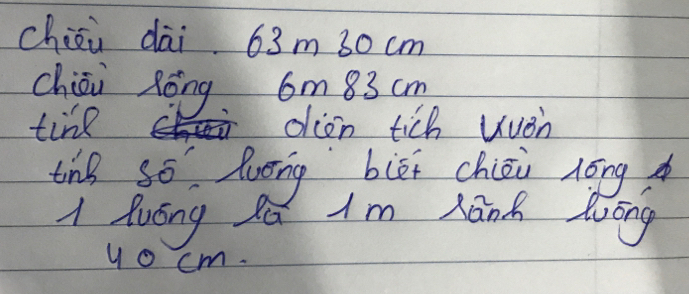 chiều dài. 63m 30cm
chiều rộng 6m 83cm
tính diện tích vườn
tính số luống biết chiều rộng
1 luống là 1m rãnh luống
40cm.